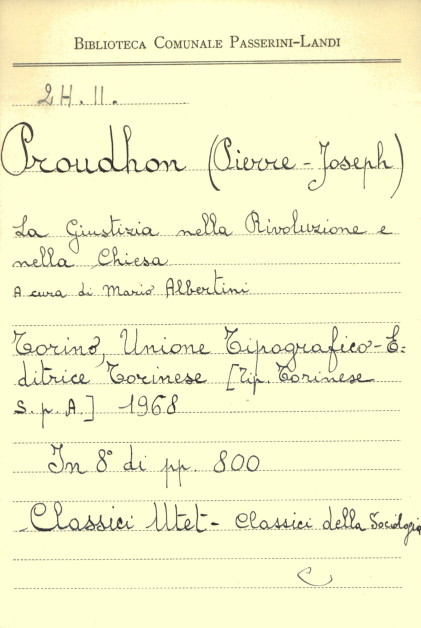 BIBLIOTECA COMUNALE PASSERINI-LANDI
2H.II.
Proudhon (Pierre-Joseph)
La Giustizia nella Rivoluzione e
nella Chiesa
A cura di Mario Albertini
Torino, Unione Tipografico-E-
ditrice Torinese [Tip. Torinese
S.p.A.] 1968
In 8° di pp. 800
Classici Utet - Classici della Sociologia